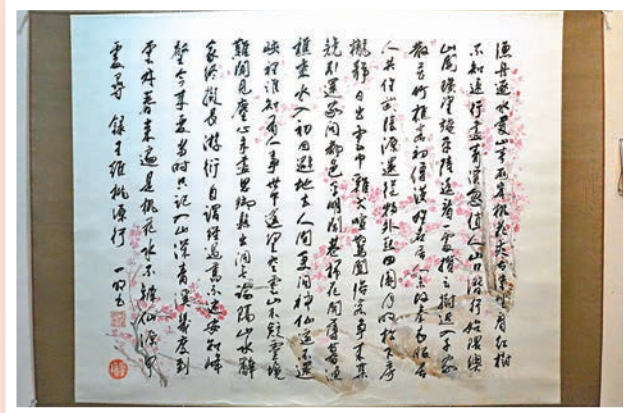 漁舟逐水愛山春兩岸桃花夾古津坐看紅樹
不知遠行盡青溪忽值人山口潛行始隈隩
山開曠望旋平陸遙看一處攢雲樹近入千家
散花竹樵客初傳漢姓名居人未改秦衣服居
人共住武陵源還從物外起田園月明松下房
櫳靜日出雲中雞犬喧驚聞俗客爭來集
競引還家問都邑平明閭巷掃花開薄暮漁
樵乘水入初因避地去人間更問神仙遂不還
峽裡誰知有人事世中遙望空雲山不疑靈境
難聞見塵心未盡思鄉縣出洞無論隔山水辭
家終擬長游衍自謂經過舊不迷安知峰
壑今來變當時只記入山深青溪幾度到
雲林春來遍是桃花水不辨仙源何
處尋 錄王維桃源行